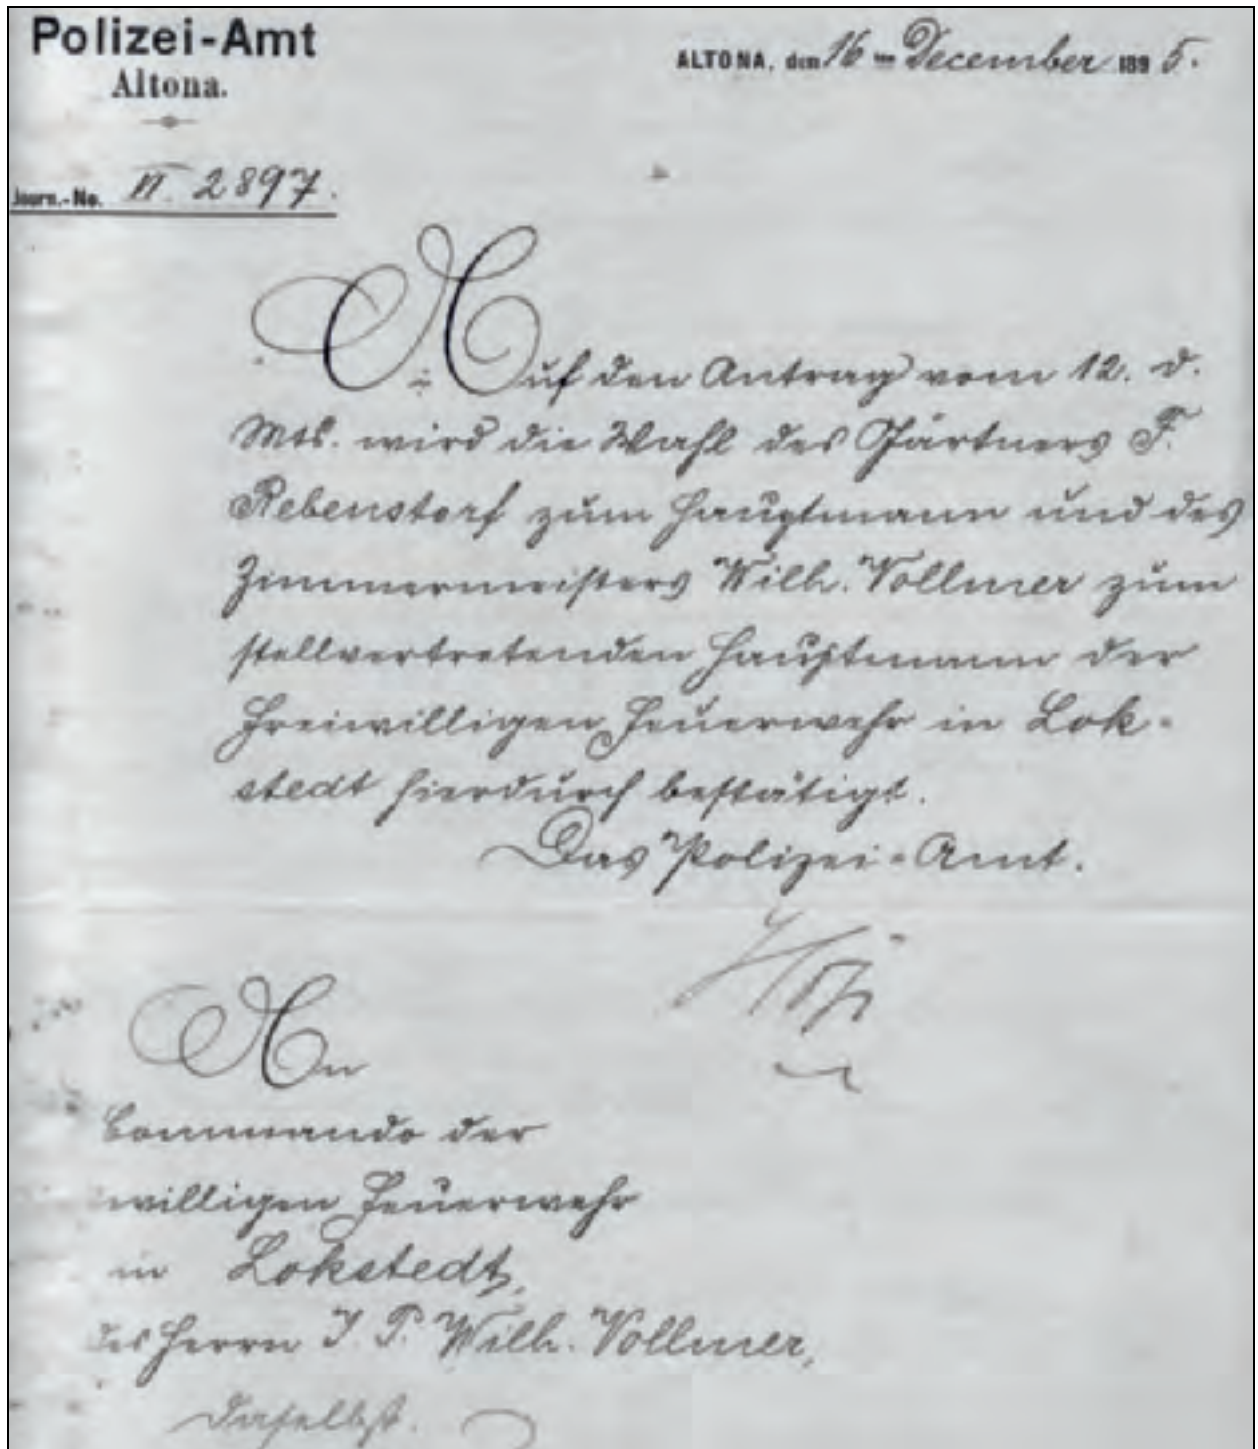 Polizei-Amt
Altona.
ALTONA, den 16ten December 1895.
Journ.-No. II. 2897.
Auf den Antrag vom 12. d.
Mts. wird die Wahl des Gärtners F.
Rebenstorf zum Hauptmann und des
Zimmermeisters Wilh. Vollmer zum
stellvertretenden Hauptmann der
Freiwilligen Feuerwehr in Lok-
stedt hierdurch bestätigt.
Das Polizei-Amt.
An
Commando der
willigen Feuerwehr
in Lokstedt,
des Herrn J. P. Wilh. Vollmer,
daselbst.